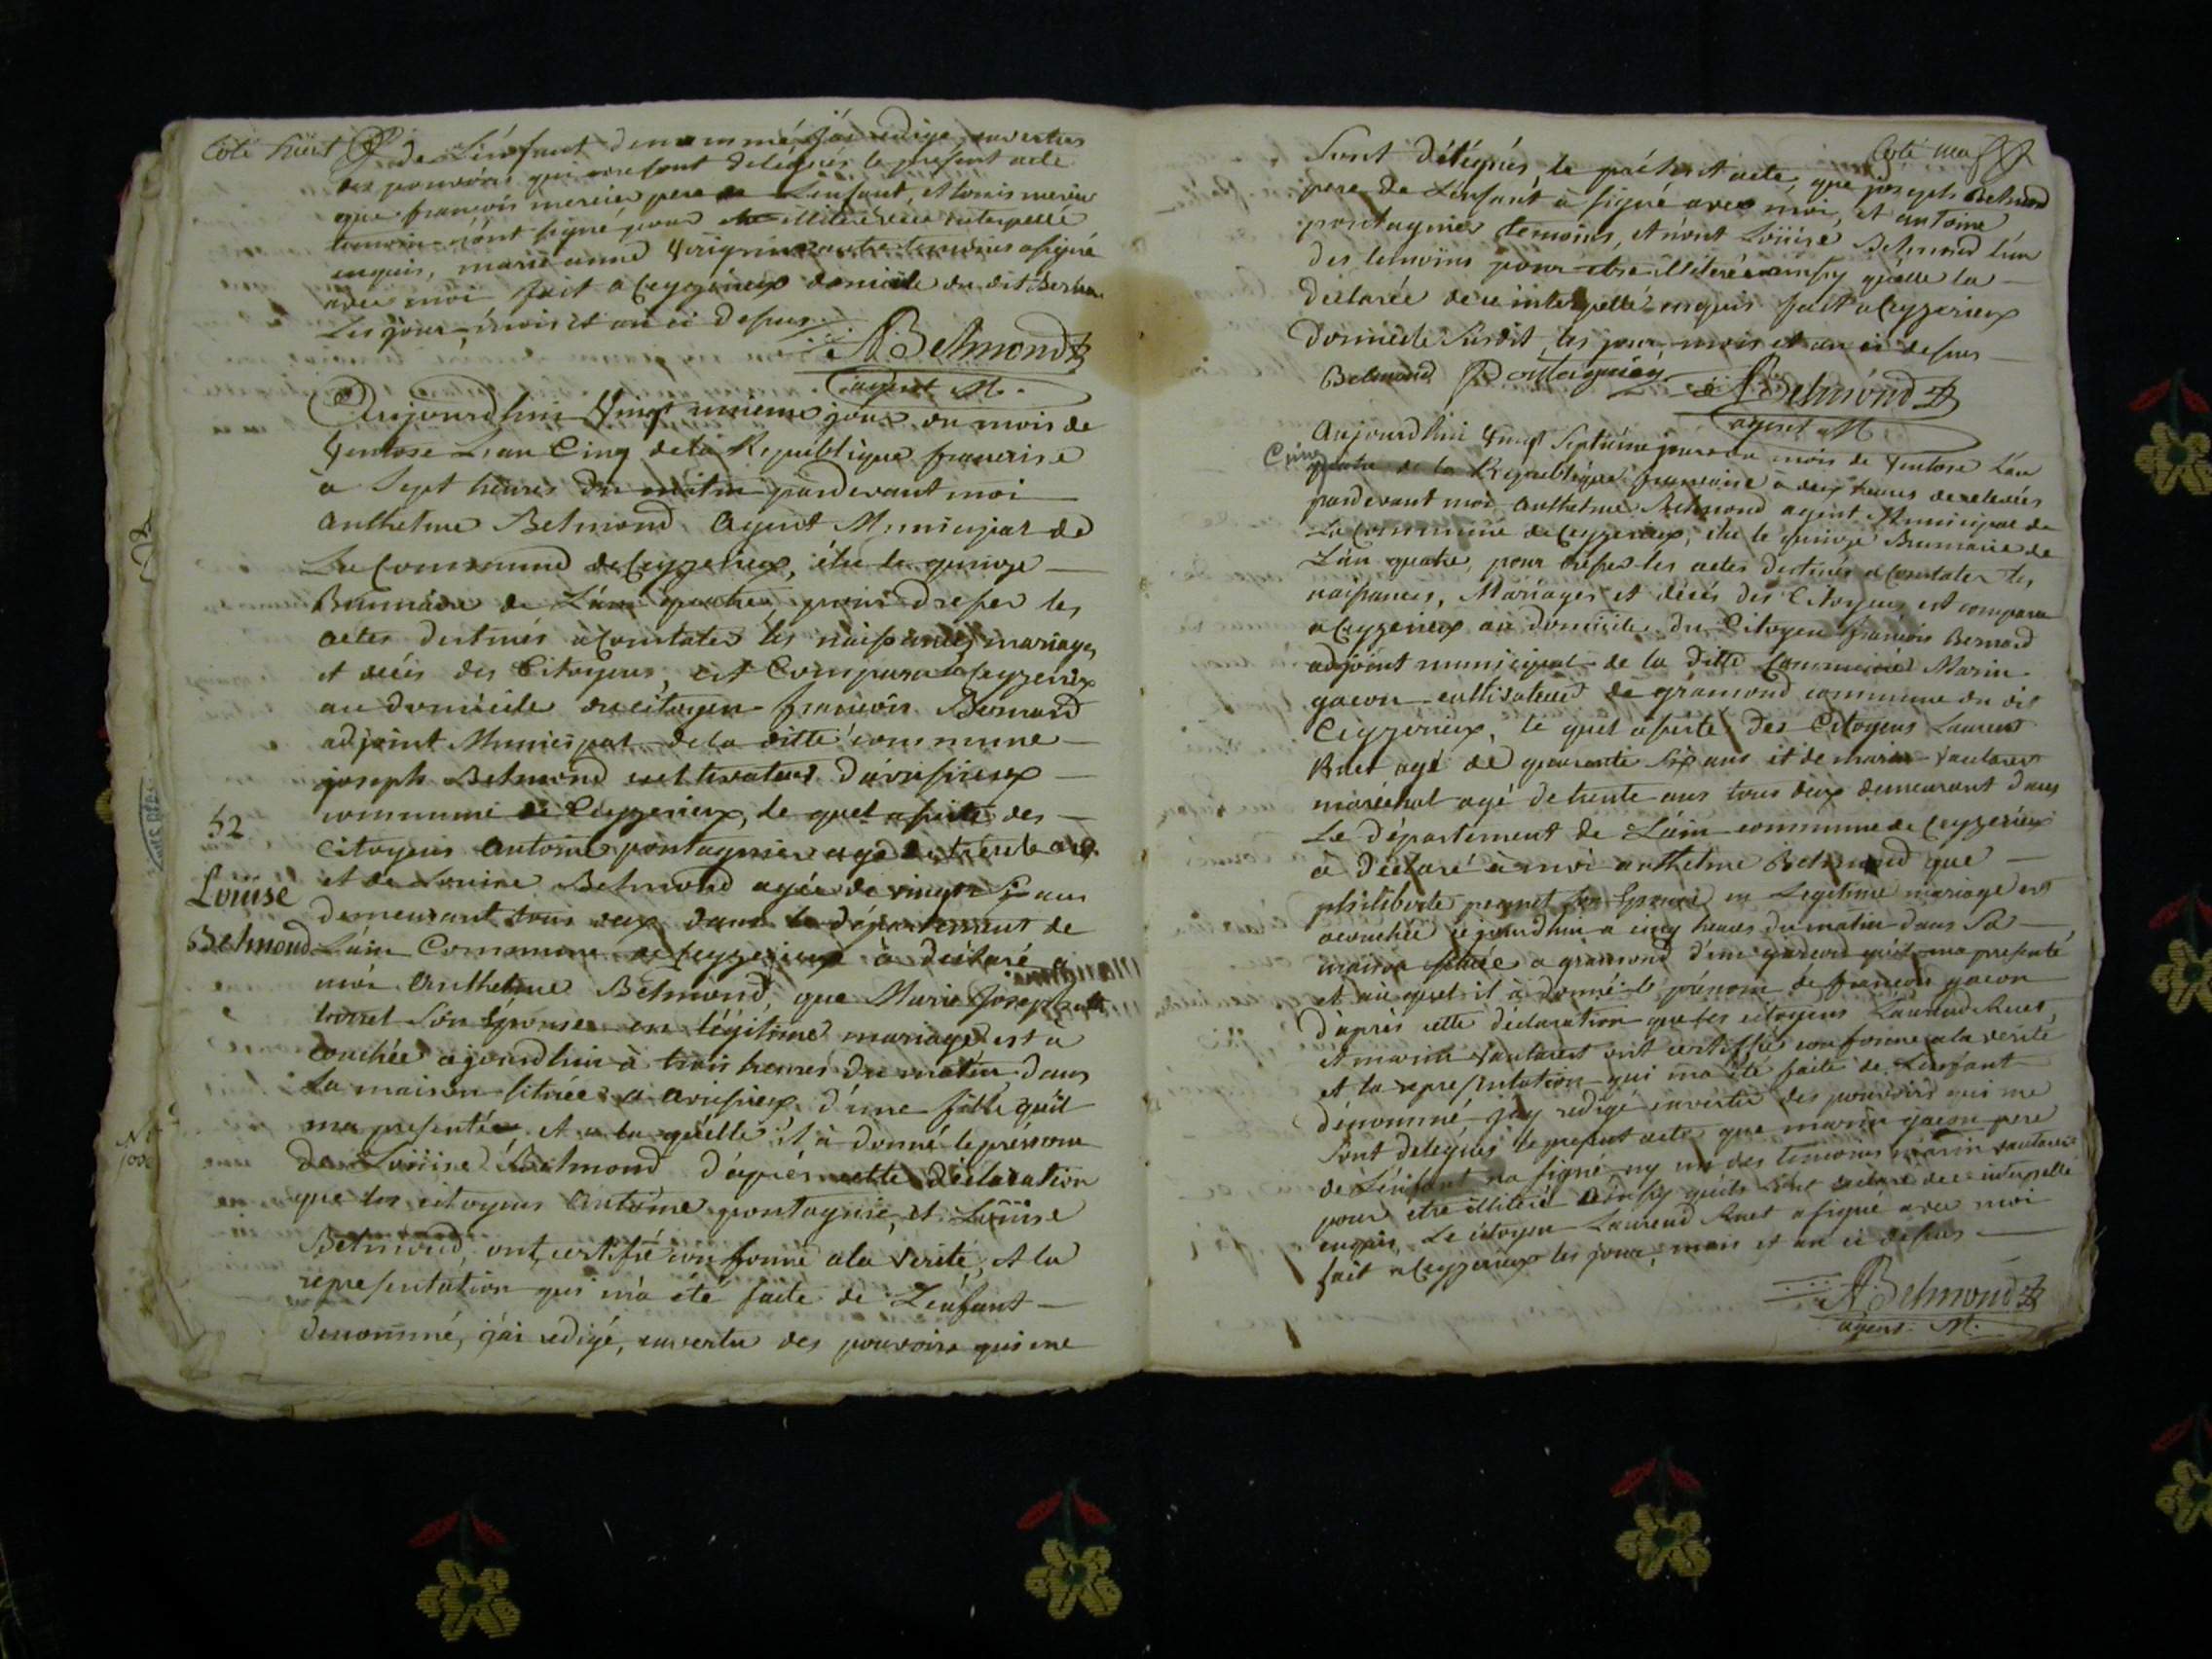 Coté huit
de L'enfant denommé, j'ai redigé, envertus
des pouvoirs qui me sont delégués le present acte
que françois mercier pere de L'enfant, et louis mercier
temoin n'ont signé pour être illiteré de ce interpellé
enquis, marie anne autre temoins a signé
avec moi fait a Ceyzerieux domicile du dit Bernard
Les jour, mois et an ci dessus
ABelmond
agent M.
Aujourdhui Vingt unieme jour du mois de
Ventose L'an Cinq de la Republique francaise
a Sept heures du matin pardevant moi
Anthelme Belmond Agent Municipal de
La Commune de Ceyzerieux, élu le quinze
Brumaire de L'an quatre, pour dresser les
actes destinés a Constater les naissances, mariages
et décés des Citoyens, est Comparu a Ceyzerieux
au domicile du citoyen françois Bernard
adjoint Municipal de la ditte commune
joseph Belmond cultivateur d'avrissieux
commune de Ceyzerieux, le quel assisté des
52
Citoyens Antoine pontagnier agé de trente ans
Loüise
Belmond
et de Louise Belmond agée de vingt Six ans
demeurant tous deux dans le département de
L'ain Commune de Ceyzerieux à déclaré a
moi Anthelme Belmond, que Marie Josephte
Son Épouse en légitime mariage est a
couchée ajourdhuis à trois heures du matin dans
La maison située a avrissieux d'une fille quil
ma presentée, et a la quélle il à donné le prénom
de Loüise Belmond d'aprés cette déclaration
que les citoyens Antoine pontagnié, et Loüise
Belmond, ont certifié conforme a la verité, et la
representation qui m'a été faite de L'enfant
denommé, j'ai redigé, envertu des pouvoirs qui me
Coté neuf
Sont délégués, le présent acte, que joseph Belmond
pere de L'enfant à signé avec moi, et antoine
pontagnier temoins, et n'ont Loüise Belmond l'un
des temoins pour etre illiterée ainsy quelle la
declarée de ce interpellé enquis fait a Ceyzerieux
domicile Susdit, les jour, mois et an ci dessus
Belmond Pontagnier ABelmond
agent M
Aujourdhui Vingt Septieme jour du mois de Ventose L'an
Cinq
quatre de la Republique française à deux heures de relevées
pardevant moi Anthelme Belmond agent Municipal de
La Commune de Ceyzerieux, élu le quinze Brumaire de
L'an quatre, pour dresser les actes destinés a Constater les
naissances, Mariages et décés des Citoyens est comparu
a Ceyzerieux au domicile du Citoyen francois Bernard
adjoint municipal de la ditte Commune Marin
gacon cultivateur de grámond commune du dit
Ceyzerieux, le quel assisté des Citoyens Laurent
Ruet agé de quarante Six ans et de marin vautaret
maréchal agé de trente ans tous deux demeurant dans
Le département de L'ain commune de Ceyzerieux
a déclaré à moi anthelme Belmond que
philiberte Son Epouse en Legitime mariage est
acouchée ajourdhui a cinq heures du matin dans Sa
maison située a gramond d'un garcon quil ma presenté
et au quel il à donné le prénom de françois gacon
d'aprés cette déclaration que les citoyens Laurend Ruet,
et marin vautaret ont certiffié conforme a la verité
et la representation qui ma été faite de L'enfant
dénommé, j'ay redigé envertu des pouvoirs qui me
Sont delegués le present acte que marin gacon pere
de L'enfant n'a signé ny un des temoins marin vautaret
pour etre illiteré ainsy quils l'ont declaré de ce interpellé
enquis, Le citoyen Laurend Ruet a signé avec moi
fait a Ceyzerieux les jour, mois et an ci dessus
ABelmond
agent M.